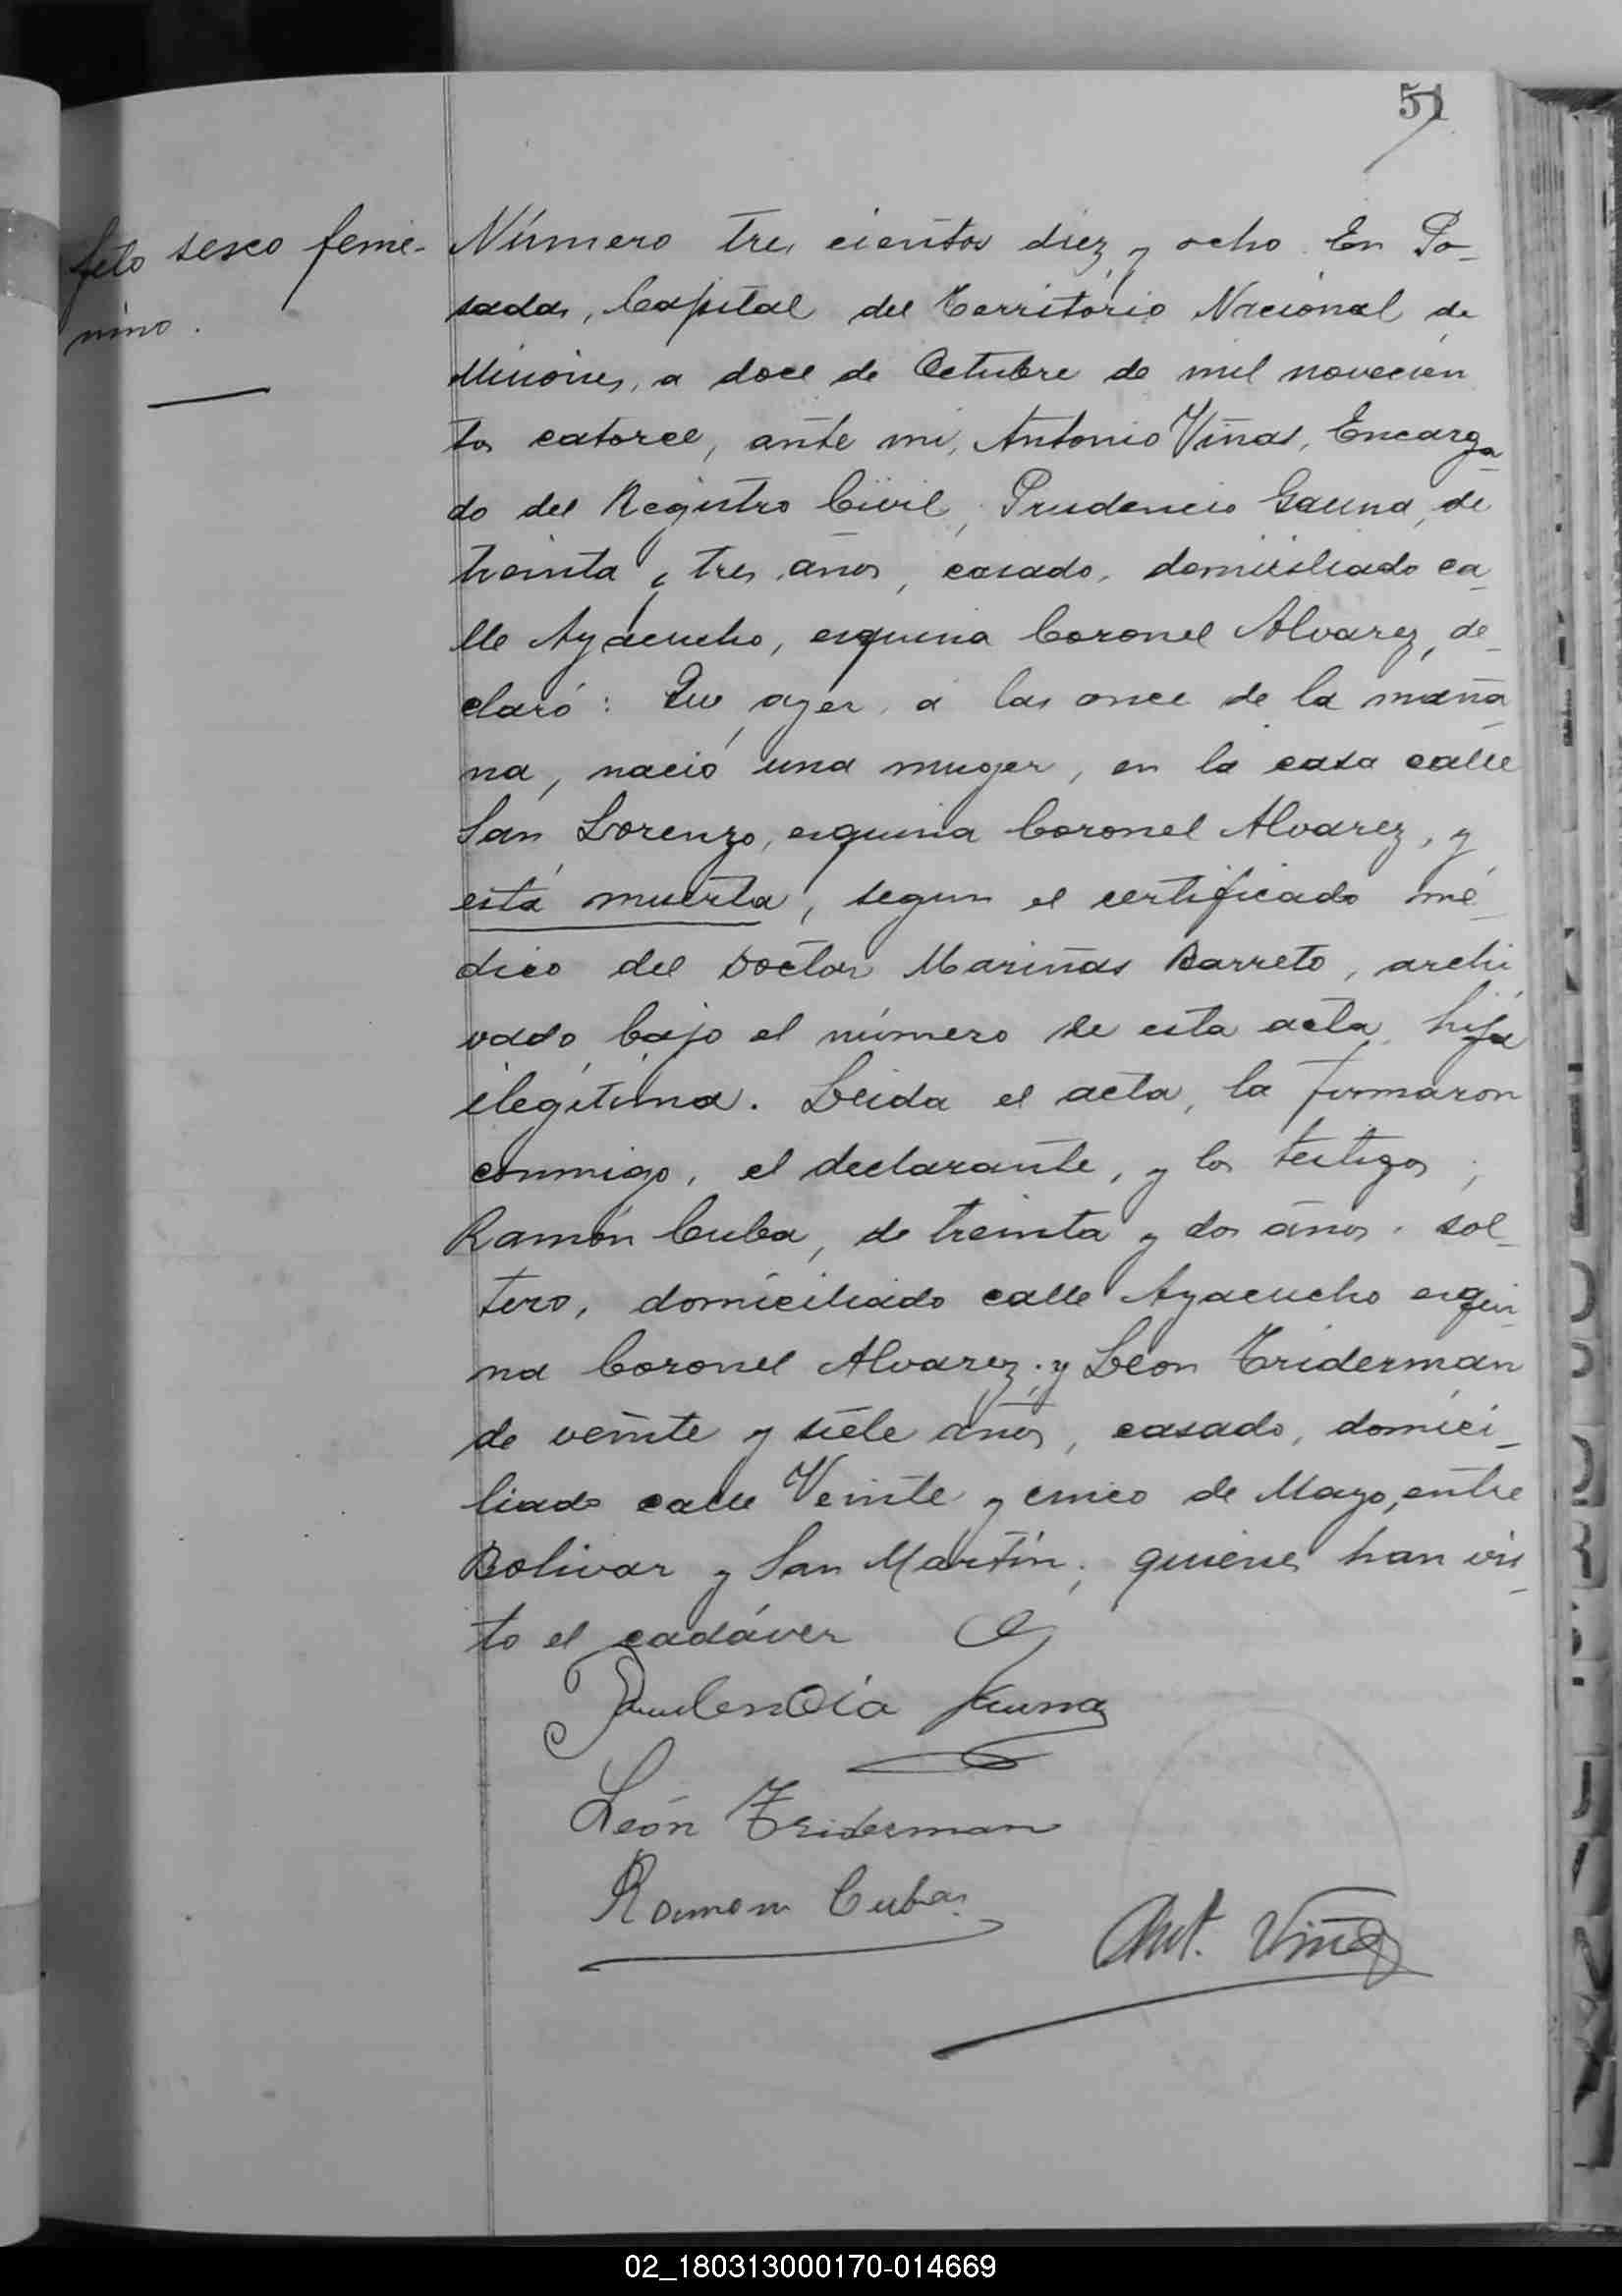 51
feto sesco feme-
nino.
Número tres cientos diez y ocho. En Po-
sadas, Capital del Territorio Nacional de
Misiones, a doce de Octubre de mil novecien
tos catorce, ante mi, Antonio Viñas, Encarga-
do del Registro Civil, Prudencio Gauna, de
treinta y tres años, casado, domiciliado ca-
lle Ayacucho, esquina Coronel Alvarez, de-
claró: Que ayer, á las once de la maña-
na, nació una muger, en la casa calle
San Lorenzo, esquina Coronel Alvarez, y
está muerta, segun el certificado mé-
dico del Doctor Mariñas Barreto, archi
vado bajo el número de esta acta, hija
ilegítima. Leida el acta, la firmaron
conmigo, el declarante, y los testigos;
Ramón Cuba, de treinta y dos años, sol-
tero, domiciliado calle Ayacucho esqui-
na Coronel Alvarez; y Leon Triderman
de veinte y siete años, casado, domici-
liado calle Veinte y cinco de Mayo, entre
Bolivar y San Martín; quienes han vis-
to el cadáver
Prudencia Gauna
León Triderman
Ramon Cuba
Ant. Viñas
02_180313000170-014669